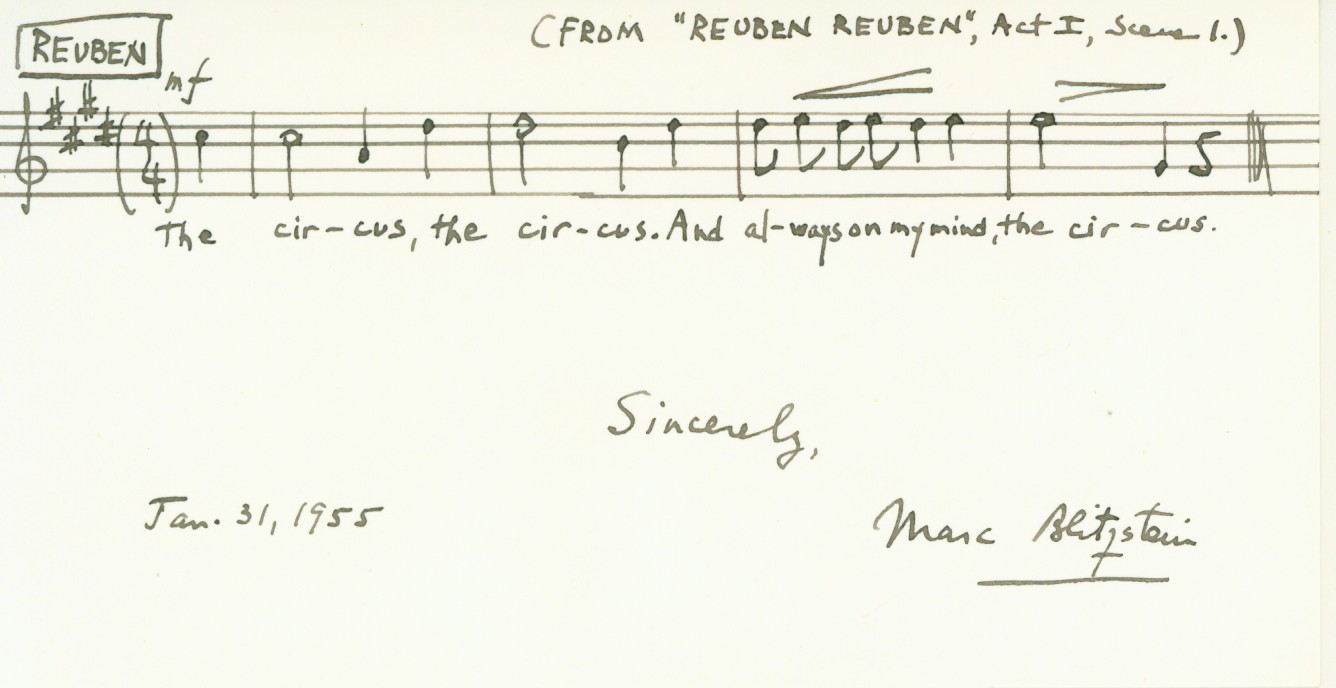 (FROM "REUBEN REUBEN", Act I, Scene 1.)
REUBEN
mf
4
4
The cir-cus, the cir-cus. And al-ways on my mind, the cir-cus.
Sincerely,
Jan. 31, 1955
Marc Blitzstein